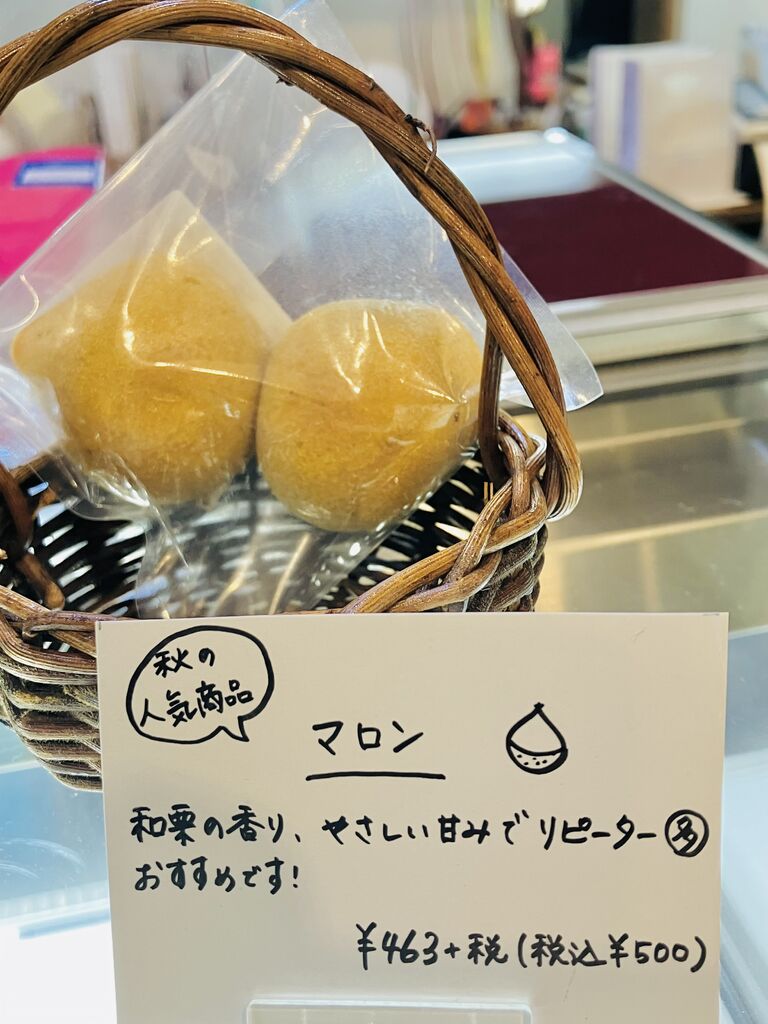 秋の
人気商品
マロン
和栗の香り、やさしい甘みでリピーター多
おすすめです!
¥463+税(税込¥500)